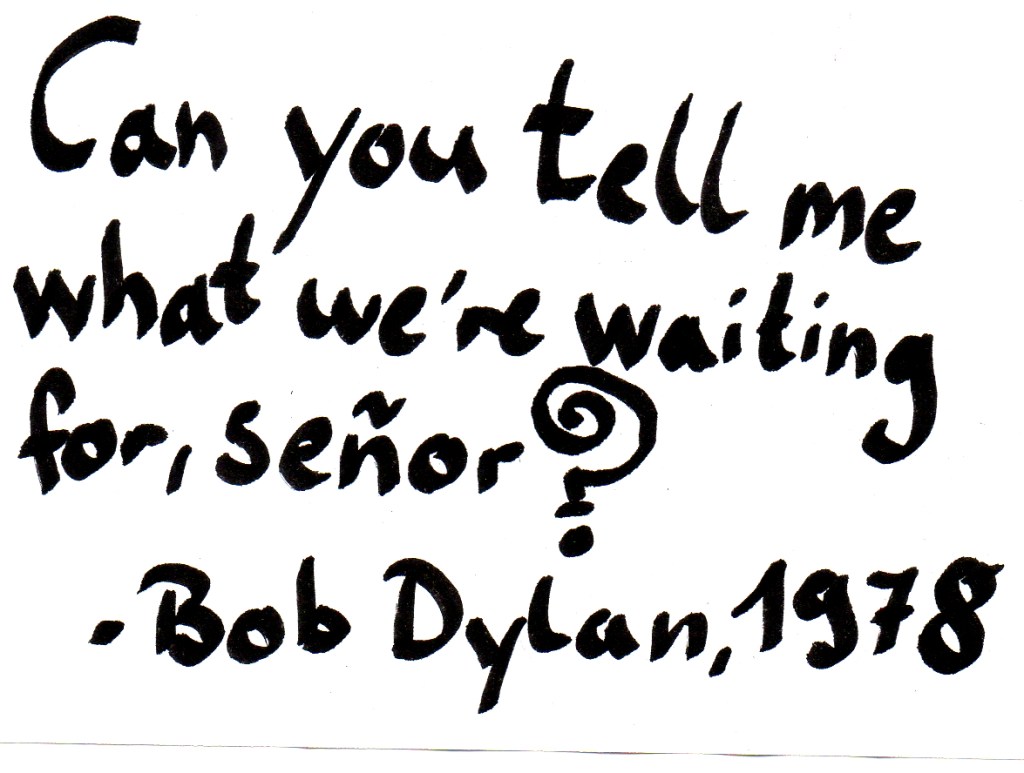 Can you tell me
what we're waiting
for, señor?
-Bob Dylan, 1978